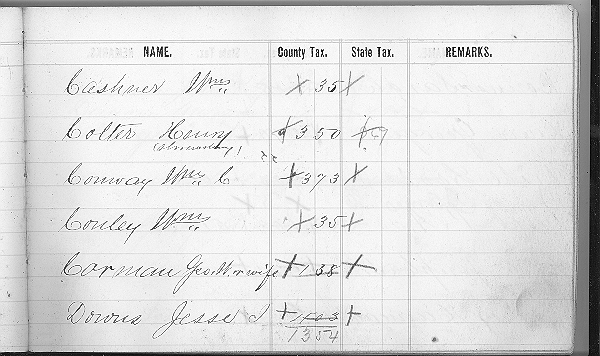 NAME. County Tax. State Tax. REMARKS.
Cashner Wm X 35 X
Colter Henry X 350 X 69
Conway Wm C X 373 X
Conley Wm X 35 X
Corman Geo. W. or wife X 138 X
Downs Jesse J X 1403 X
1354